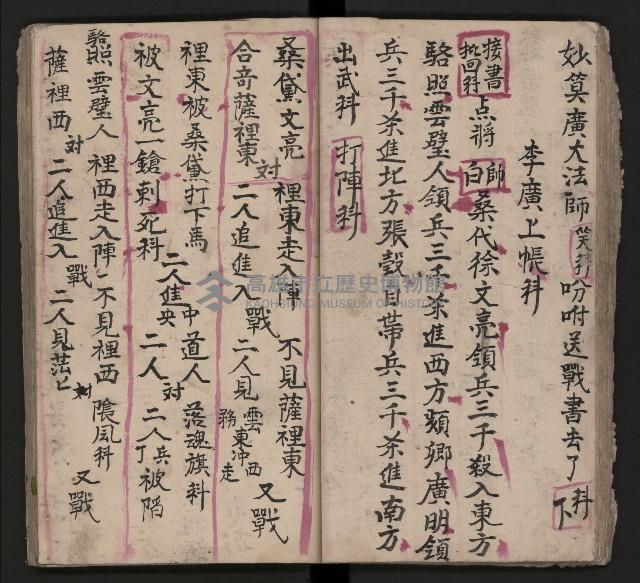 妙算廣大法師笑科吩咐送戰書去了科下
李廣上帳科
接書批回科点将師白桑代徐文亮領兵三千殺入東方
駱照雲璧人領兵三千杀進西方頪卿廣明領
兵三千杀進北方張轂自带兵三千杀進南方
出武科打陣科
桑黛文亮對裡東走入陣不見薩裡東
合音薩裡東二人追進入戰二人見雲務東冲西走又戰
裡東被桑黛打下馬二人進中央道人落魂旗科
被文亮一鎗刺死科二人對二人兵丁被陷
駱照雲璧人裡西走入陣不見裡西陰風科
薩裡西對二人追進入戰二人見茫匕對又戰
高雄市立歷史博物館
KAOHSIUNG MUSEUM OF HISTORY